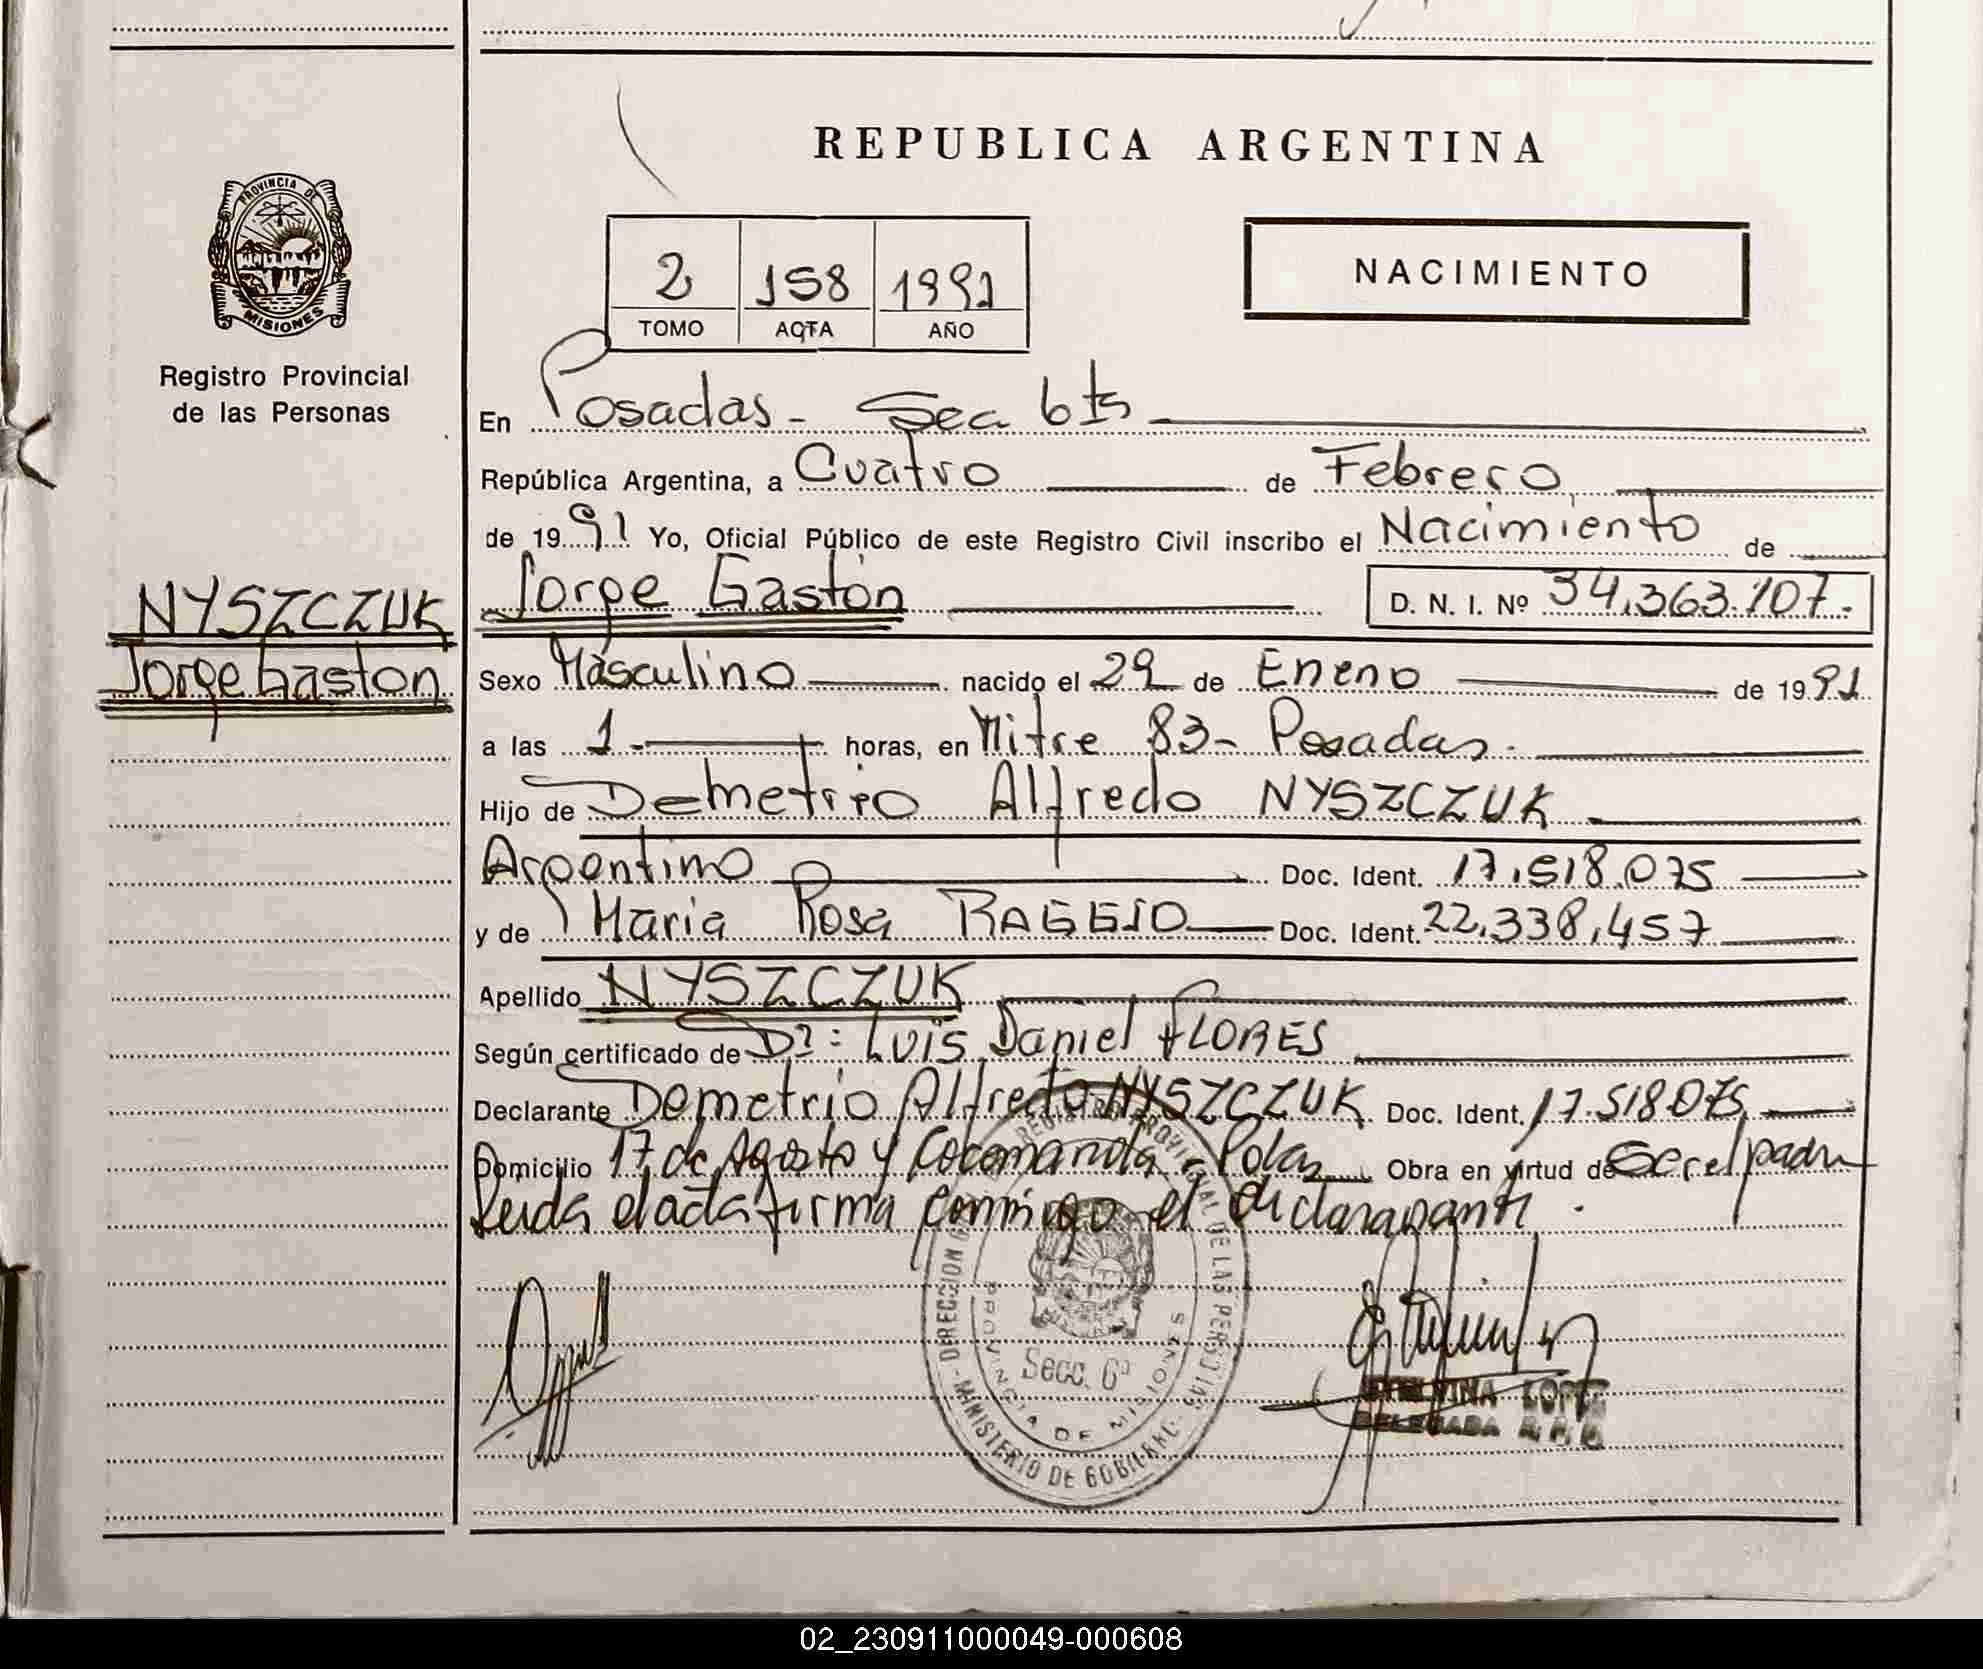 REPUBLICA ARGENTINA
PROVINCIA DE
MISIONES
Registro Provincial
de las Personas
2 158 1991
TOMO ACTA AÑO
NACIMIENTO
En Posadas - Sec 6ts
República Argentina, a Cuatro de Febrero
de 1991 Yo, Oficial Público de este Registro Civil inscribo el Nacimiento de
Jorge Gastón D. N. I. Nº 34.363.107.-
NYSZCZUK
Jorge Gaston
Sexo Masculino nacido el 29 de Enero de 1991
a las 1.- horas, en Mitre 83- Posadas.
Hijo de Demetrio Alfredo NYSZCZUK
Argentino Doc. Ident. 17.518.075
y de Maria Rosa RAGGIO Doc. Ident. 22.338.457
Apellido NYSZCZUK
Según certificado de Dr: Luis Daniel FLORES
Declarante Demetrio Alfredo NYSZCZUK Doc. Ident. 17.518.075
Domicilio 17 de Agosto y Cocomarola - Pdas Obra en virtud de Ser el padre
Leida el acta firma conmigo el
DIRECCION REGISTRO PROVINCIAL DE LAS PERSONAS
MINISTERIO DE GOBIERNO
PROVINCIA DE MISIONES
Secc. 6ª
LOPEZ
DELEGADA
02_230911000049-000608